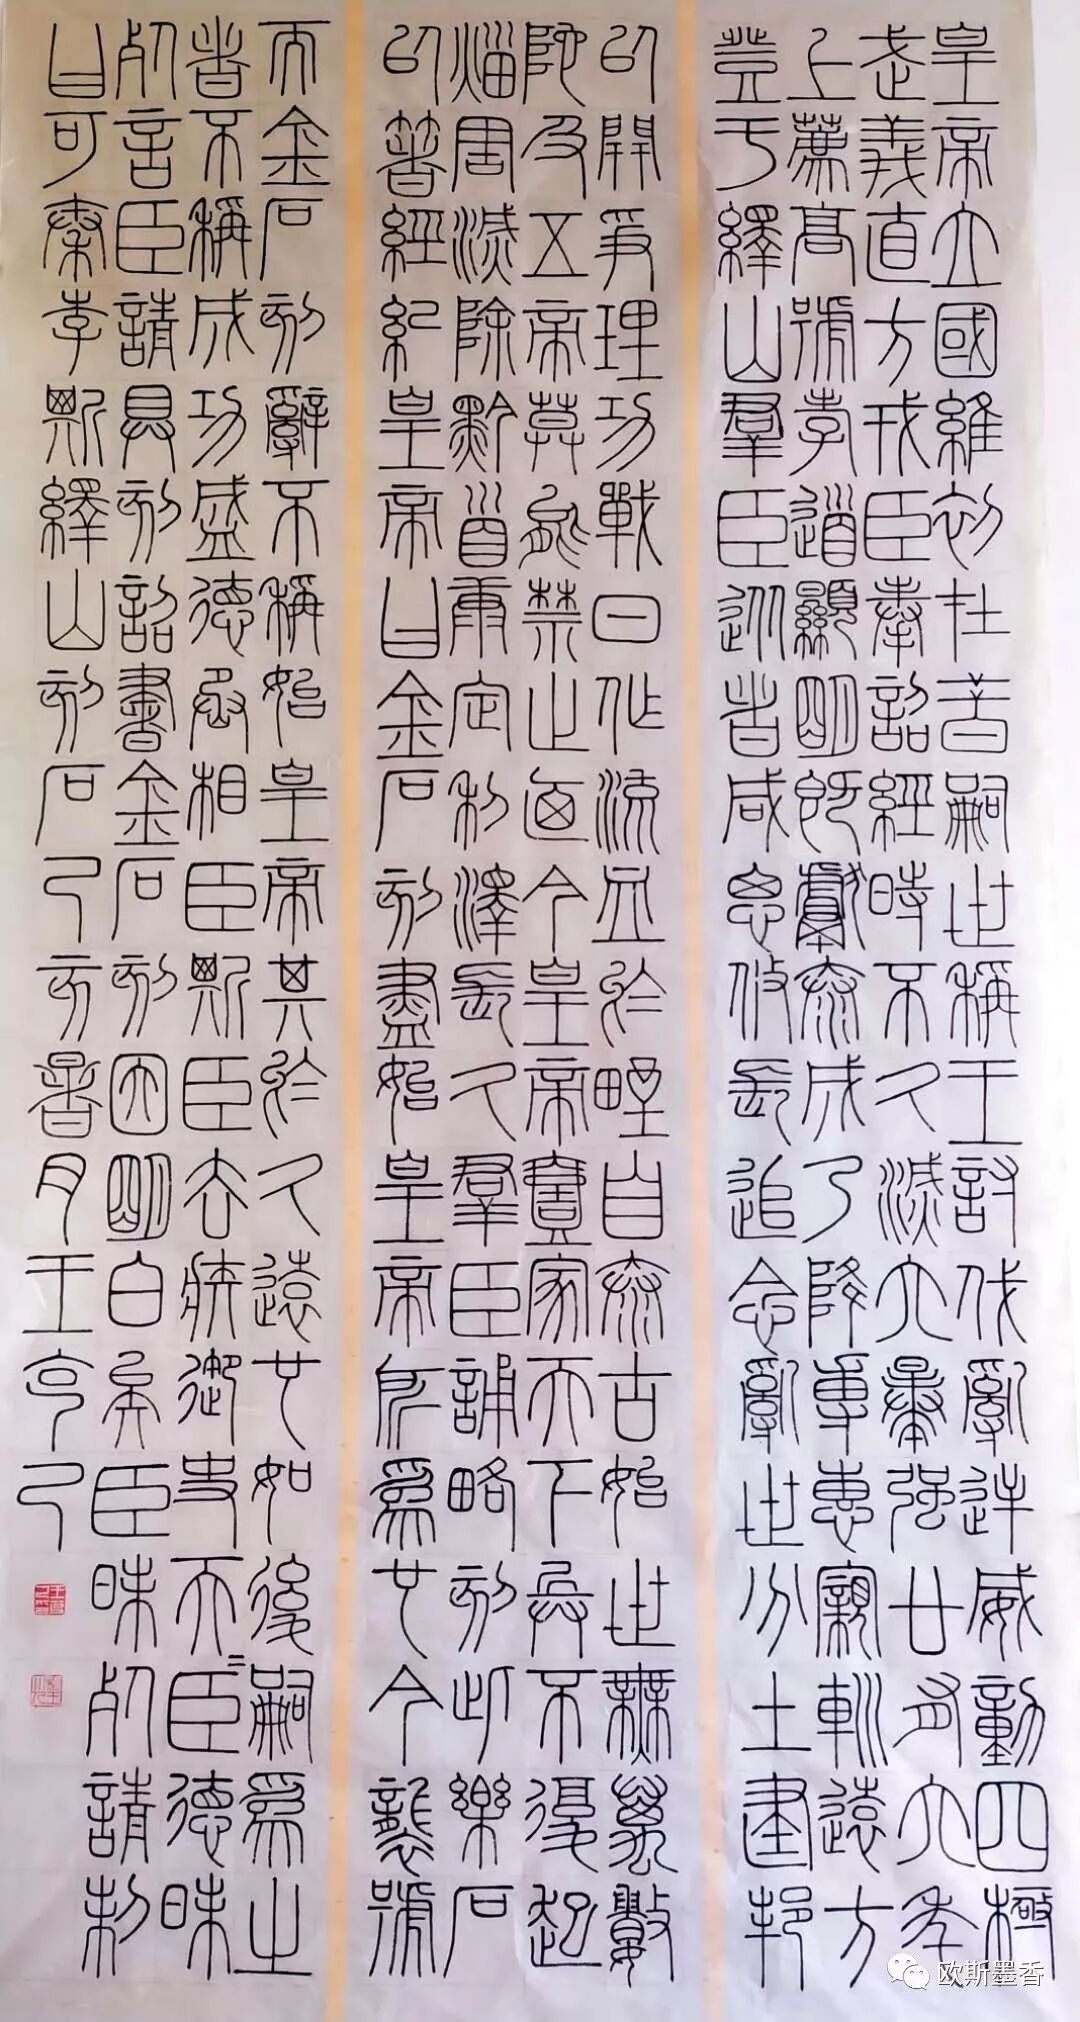 皇帝立國維初在昔嗣世稱王討伐亂逆威動四極
武義直方戎臣奉詔經時不久滅六暴強廿有六年
上薦高號孝道顯明既獻泰成乃降專惠親巡遠方
登于繹山羣臣從者咸思攸長追念亂世分土建邦
以開爭理功戰日作流血於野自泰古始世無萬數
阤及五帝莫能禁止廼今皇帝壹家天下兵不復起
災害滅除黔首康定利澤長久羣臣誦略刻此樂石
以著經紀皇帝曰金石刻盡始皇帝所為也今襲號
而金石刻辭不稱始皇帝其於久遠也如後嗣為之
者不稱成功盛德丞相臣斯臣去疾御史夫=臣德昧
死言臣請具刻詔書金石刻因明白矣臣昧死請制
曰可秦李斯繹山刻石暑月王
欧斯墨香